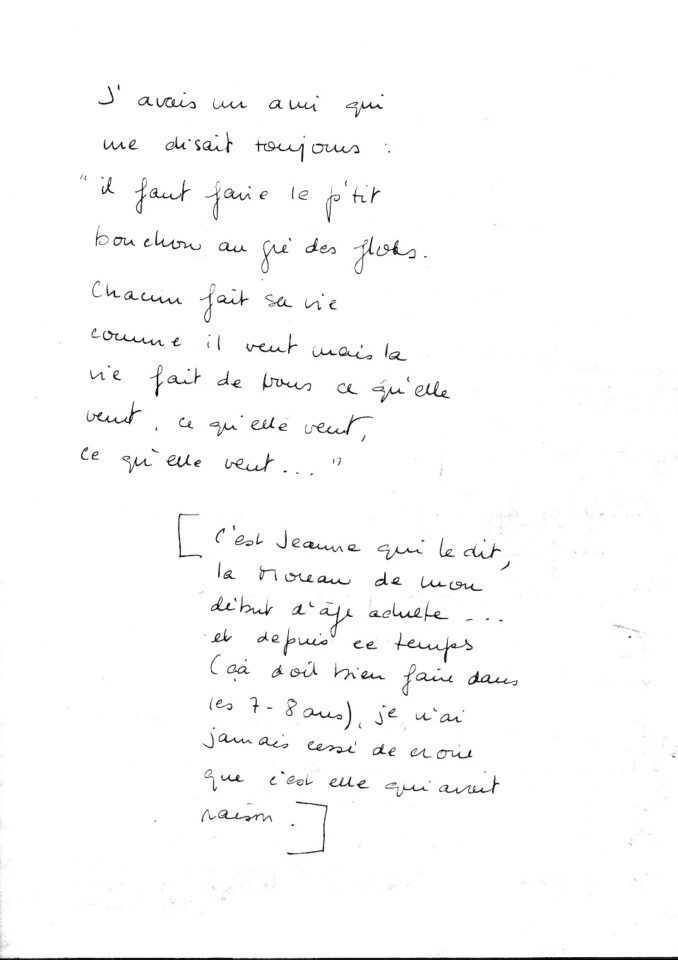 J'avais un ami qui
me disait toujours :
"il faut faire le p'tit
bouchon au gré des flots.
Chacun fait sa vie
comme il veut mais la
vie fait de vous ce qu'elle
veut, ce qu'elle veut,
ce qu'elle veut... "
[ C'est Jeanne qui le dit,
la Moreau de mon
début d'âge adulte ...
et depuis ce temps
(çà doit bien faire dans
les 7-8 ans), je n'ai
jamais cessé de croire
que c'est elle qui avait
raison. ]